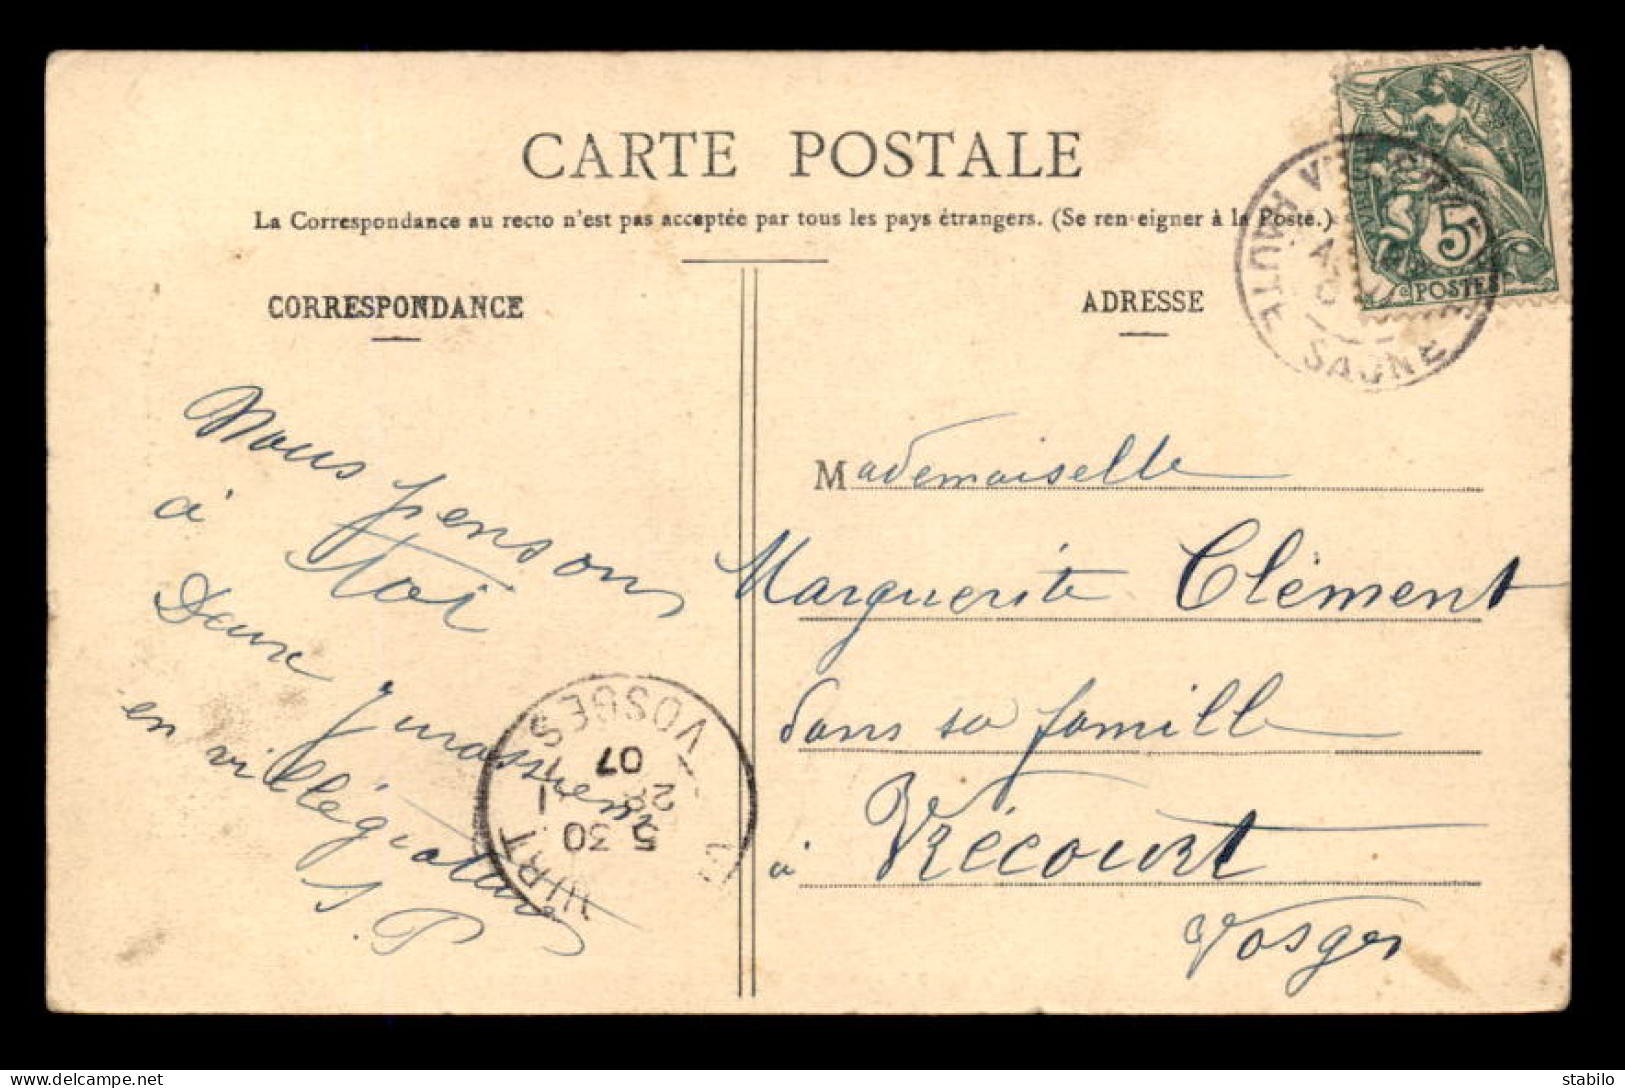 CARTE POSTALE
La Correspondance au recto n'est pas acceptée par tous les pays étrangers. (Se ren eigner à la Poste.)
CORRESPONDANCE
Nous pensons
à toi
Deux Jurassiens
en villégiature
S. P.
ADRESSE
Mademoiselle
Marguerite Clément
dans sa famille
à Vrécourt
Vosges
5
POSTES
HAUTE
SAONE
VOSGES
07
28
5 30
URT
stabilo for www.delcampe.net